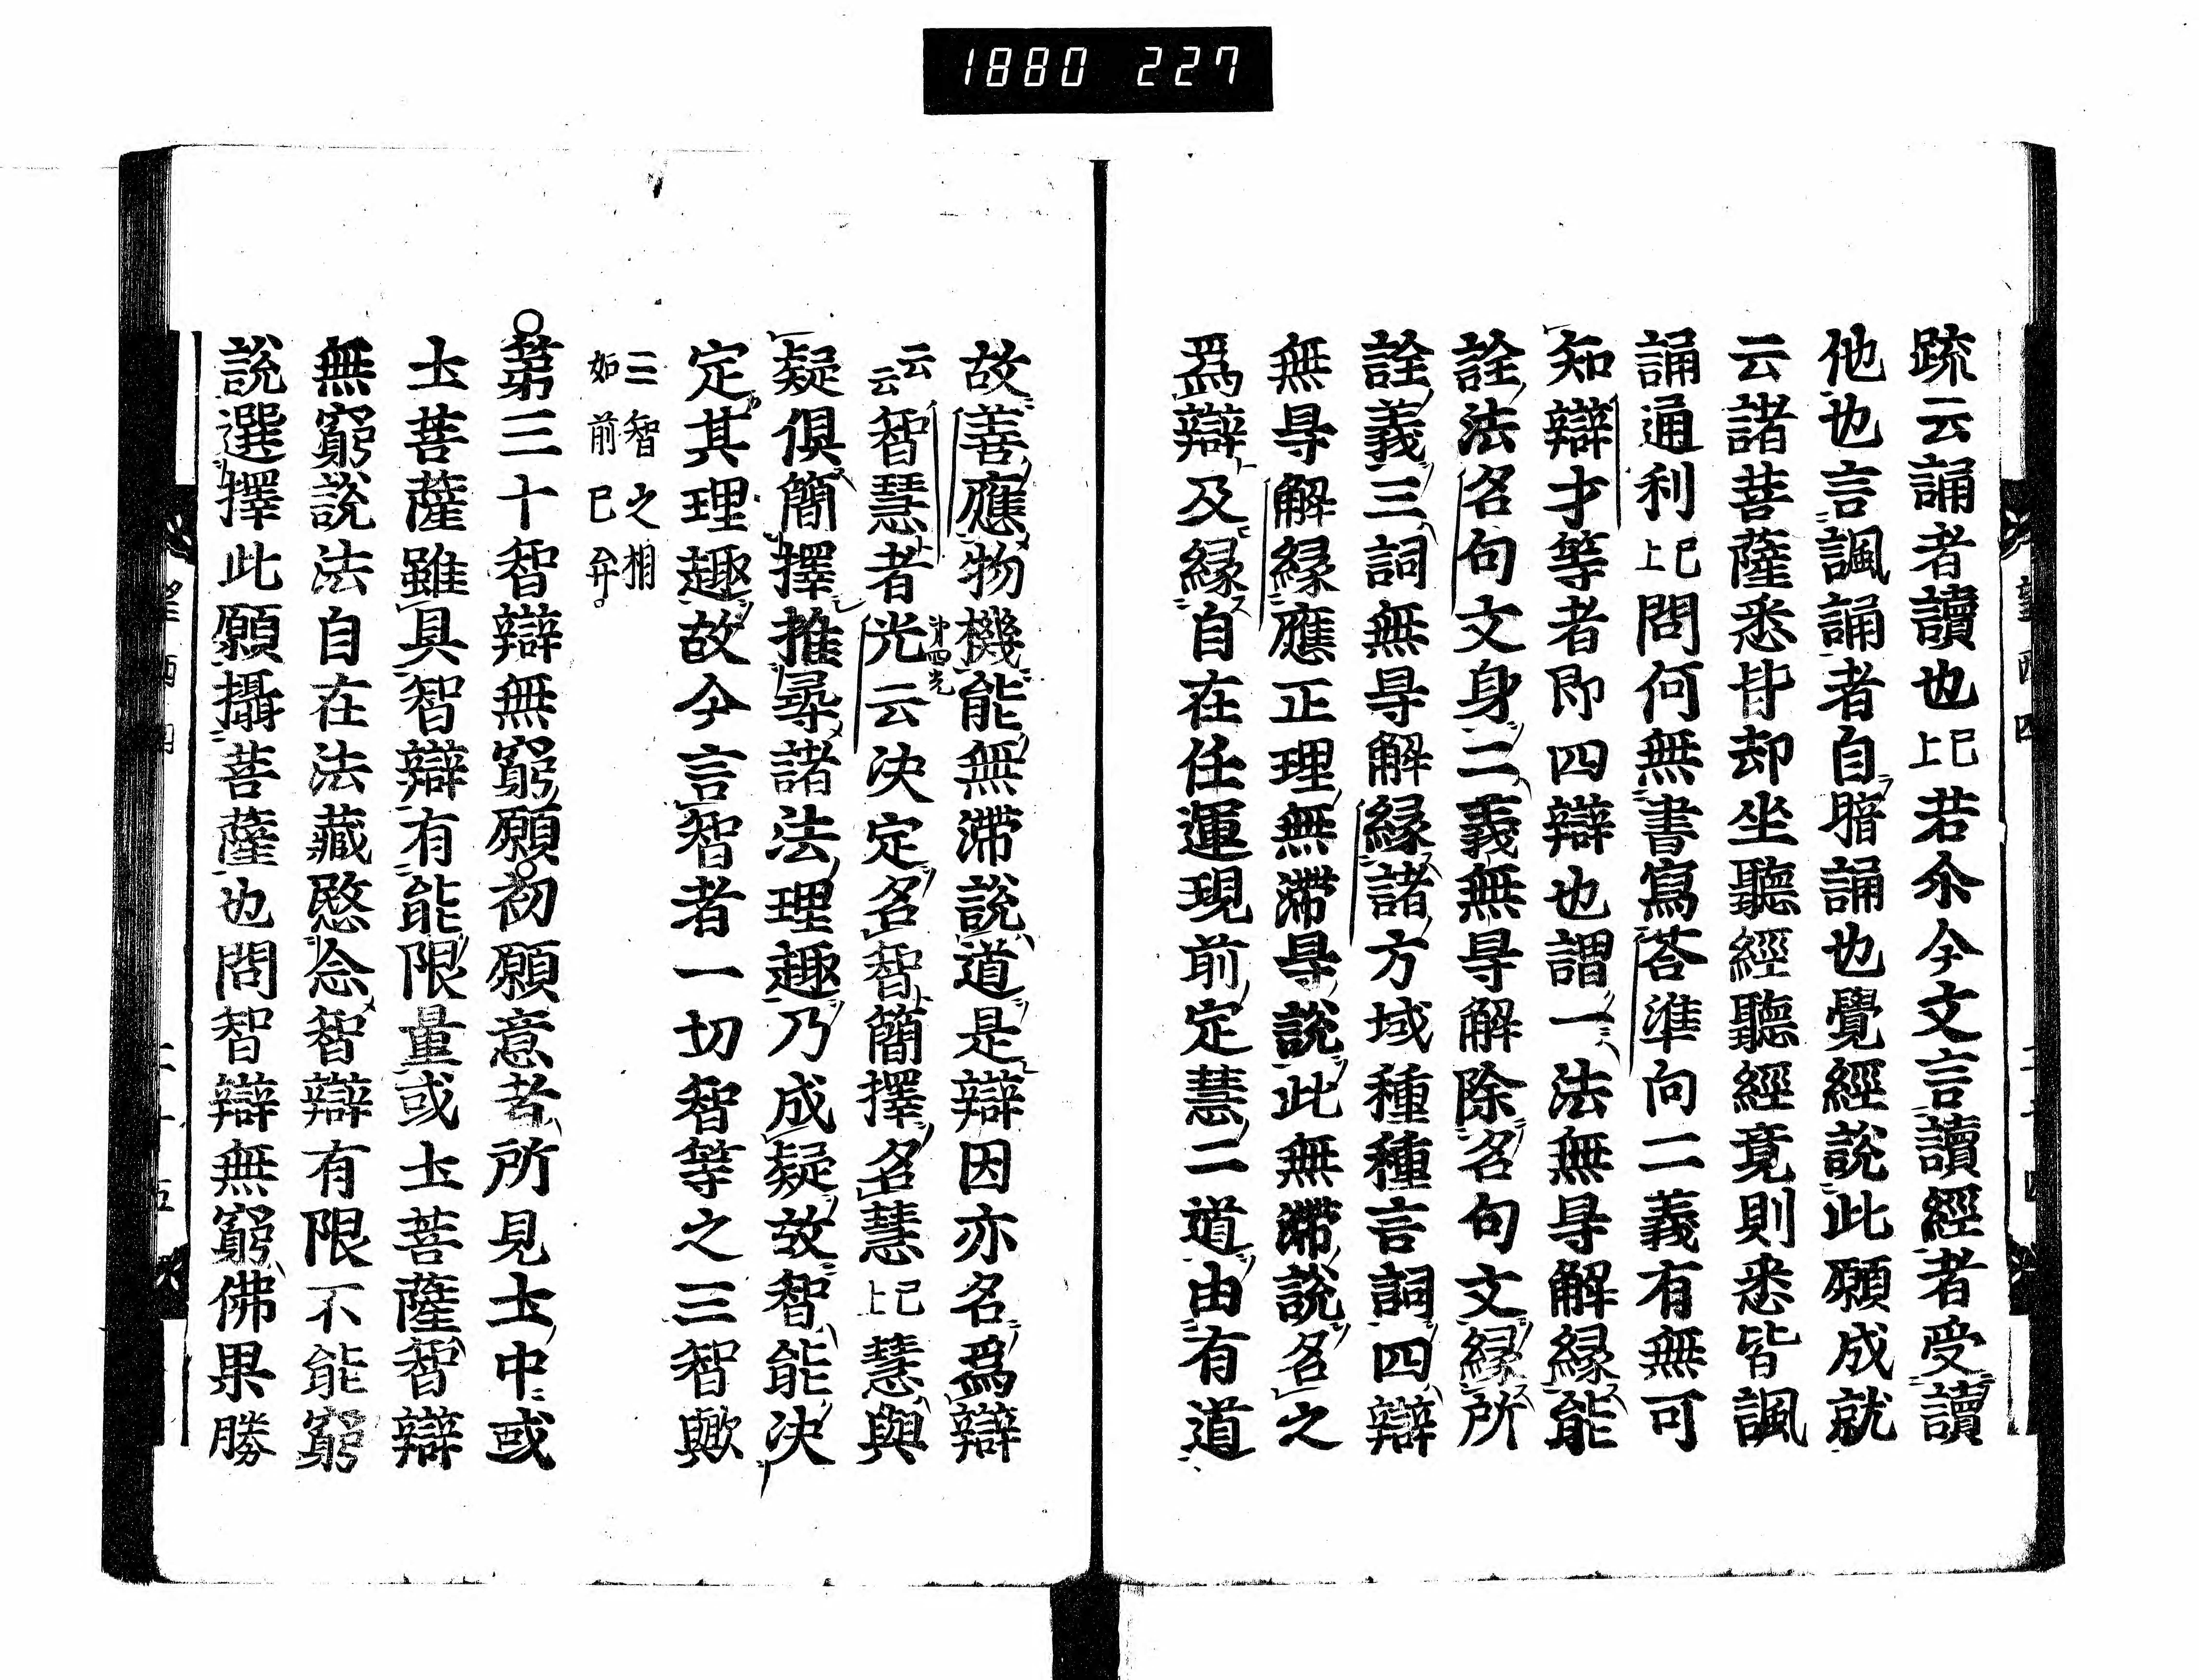 1880 227
疏云誦者讀也已上若尒今文言讀經者受讀
他也言諷誦者自暗誦也覺經說此願成就
云諸菩薩悉皆却坐聽經聽經竟則悉皆諷
誦通利已上問何無書寫荅準向二義有無可
知辯才等者即四辯也謂一法無㝵解緣能
詮法名句文身二義無㝵解除名句文緣所
詮義三詞無㝵解緣諸方域種種言詞四辯
無㝵解緣應正理無滯㝵說此無滯說名之
爲辯及緣自在任運現前定慧二道由有道
故善應物機能無滯說道是辯因亦名爲辯
云云智慧者光云決定名智簡擇名慧已上慧與
第四光
疑俱簡擇推尋諸法理趣乃成疑故智能決
定其理趣故今言智者一切智等之三智歟
三智之相
如前已弁
第三十智辯無窮願初願意者所見土中或
土菩薩雖具智辯有能限量或土菩薩智辯
無窮說法自在法藏愍念智辯有限不能窮
說選擇此願攝菩薩也問智辯無窮佛果勝